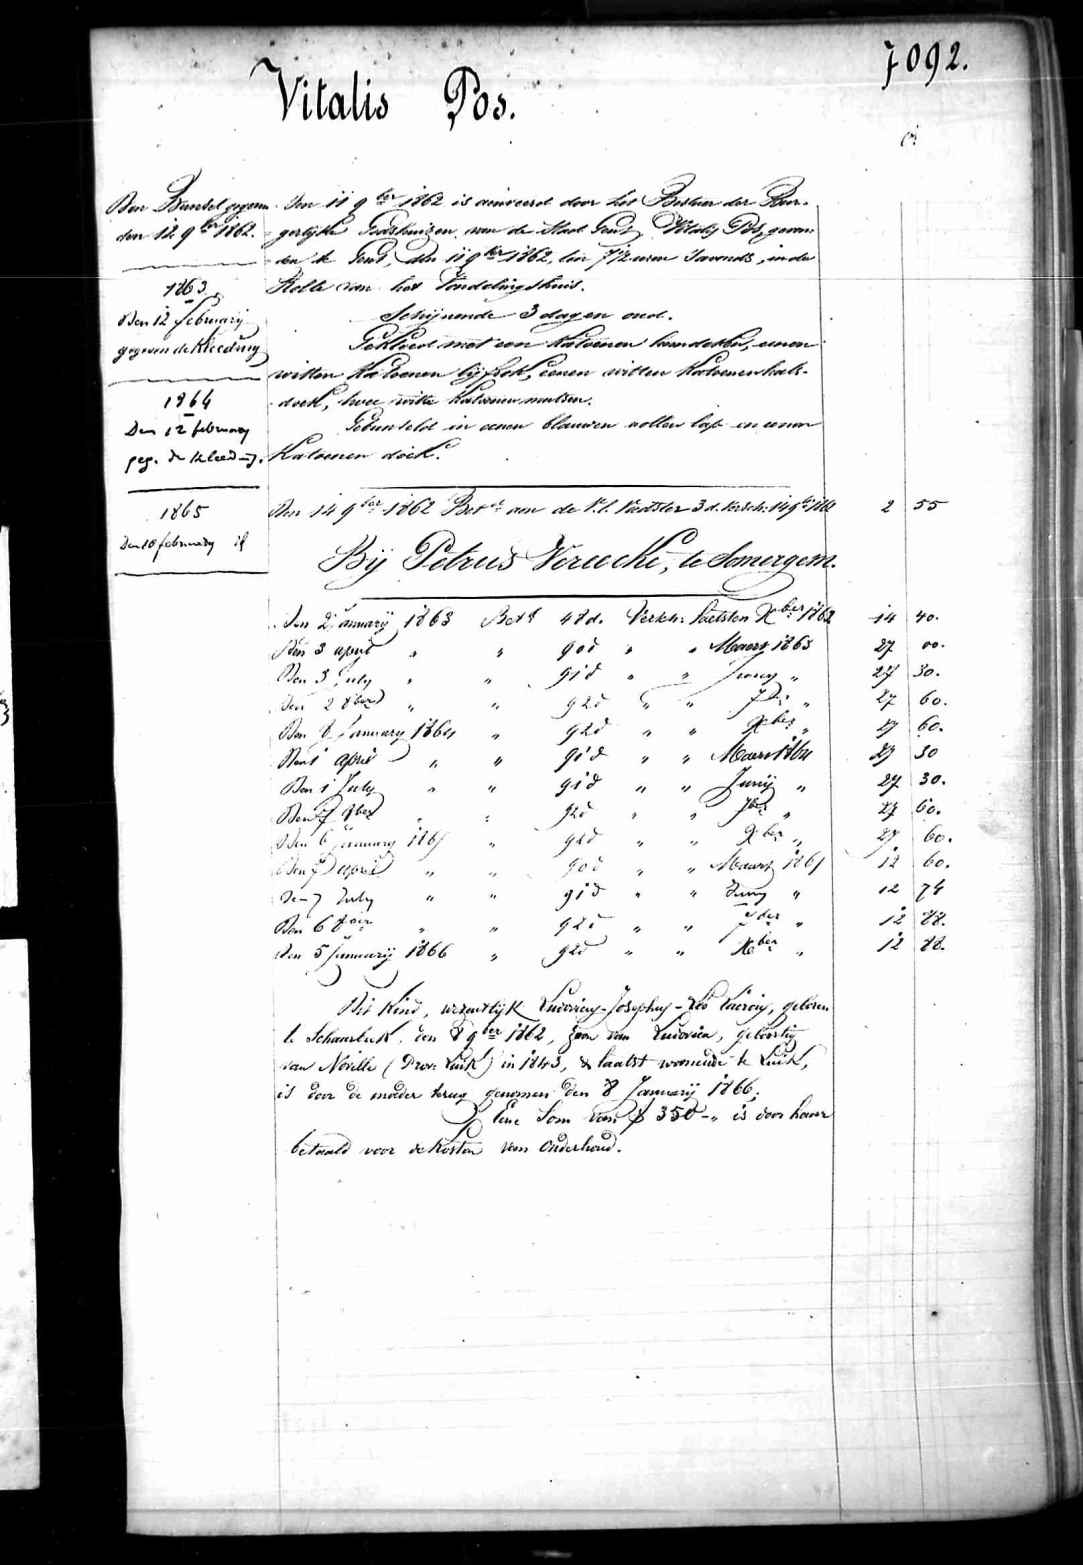 7092.
Vitalis Pos.
Den Bundel gegeven
den 12 9ber 1862.
1863
Den 12 february
gegeven de kleeding
1864
Den 12 february
geg. de kleed—g.
1865
Den 10 february if
Den 11 9ber 1862 is aanveerd door het Bestuer der Bur-
gerlijke Godshuizen van de Stad Gent, Vitalis Pos, gevon-
den te Gent, den 11 9ber 1862, ten 7 1/2 uren 'savonds, in de
Rolle van het Vondelingshuis.
Schijnende 3 dagen oud.
Gekleed met een katoenen hemdeken, eenen
witten katoenen lijfrok, eenen witten katoenen hals-
doek, twee witte katoenen mutsen.
Gebunseld in eenen blauwen wollen lap en eenen
katoenen doek.
Den 14 9ber 1862 Bet. aan de Voedster 3 d. versch. 14 9ber 1862 2 55
Bij Petrus Vereecke, te Somergem.
Den 2 January 1863 Bet. 48 d. Versch. Laetsten Xber 1862 14 40.
Den 3 april " " 90 d " " Maart 1863 27 00.
Den 3 July " " 91 d " " Juny " 27 30.
Den 2 8ber " " 92 d " " 7ber " 27 60.
Den 8 January 1864 " 92 d " " Xber " 27 60.
Den 1 april " " 91 d " " Maart 1864 27 30
Den 1 July " " 91 d " " Junij " 27 30.
Den 7 8ber " " 92 d " " 7ber " 27 60.
Den 6 January 1865 " 92 d " " Xber " 27 60.
Den 7 april " " 90 d " " Maart 1865 12 60.
Den 7 July " " 91 d " " Juny " 12 74
Den 6 8ber " " 92 d " " 7ber " 12 88.
Den 5 Januarij 1866 " 92 d " " Xber " 12 88.
Dit kind, wezentlijk Ludovicus-Josephus-Leo Lacroix, geboren
te Schaarbeek, den 8 9ber 1862, zoon van Ludovica, geboortig
van Noville (Prov: Luik) in 1843, & laatst woonende te Luik,
is door de moeder terug genomen den 8 January 1866;
Eene Som van f 350-" is door haar
betaald voor de kosten van onderhoud.